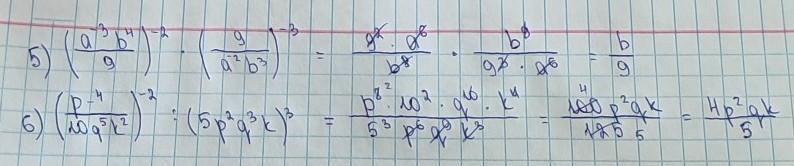 5) (a³b⁴/9)⁻² · (9/a²b³)⁻³ = 9² · a⁶/b⁸ · b⁹/9³ · a⁶ = b/9
6) (p⁻⁴/10q⁵k²)⁻² : (5p²q³k)³ = p⁸ ² · 10² · q¹⁰ · k⁴/5³ p⁶ q⁹ k³ = 100 4 p²qk/125 5 = 4p²qk/5